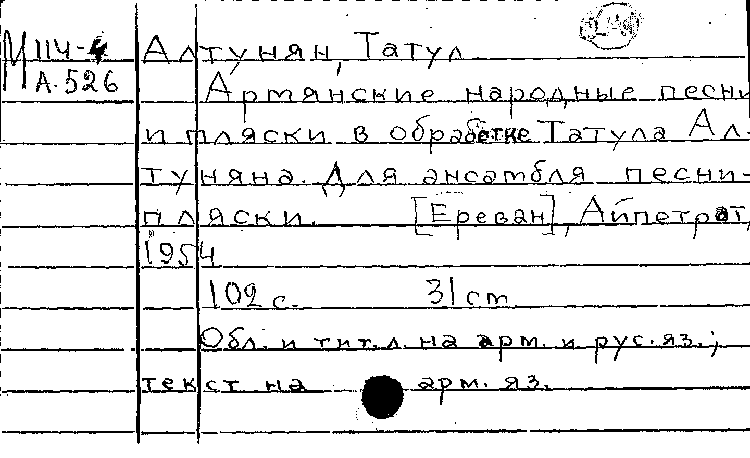 М 114-4 Алтунян, Татул
А.526
Армянские народные песни
и пляски в обработке Татула Ал-
туняна. Для ансамбля песни-
пляски. [Ереван], Айпетрат,
1954
102 с. 31 cm
Обл. и тит.л. на арм. и рус.яз.;
текст на арм. яз.